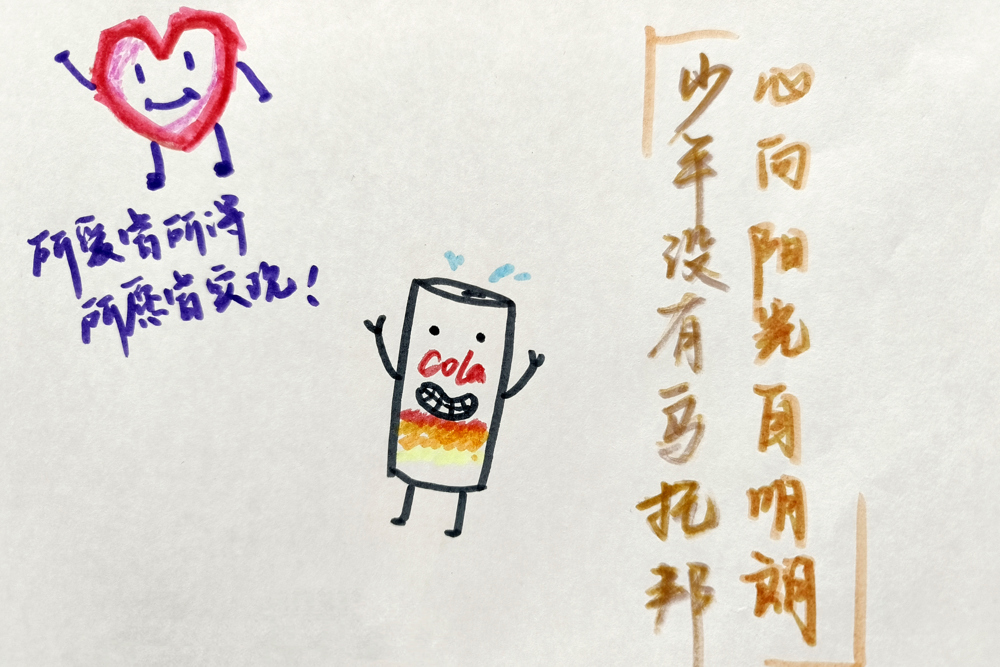 所爱皆所得
所愿皆实现!
Cola
少年没有乌托邦
心向阳光自明朗